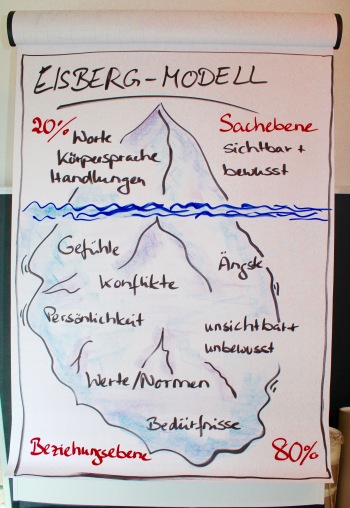 EISBERG-MODELL
20%
Worte
Körpersprache
Handlungen
Sachebene
sichtbar +
bewusst
Gefühle
Ängste
Konflikte
Persönlichkeit
unsichtbar+
unbewusst
Werte/Normen
Bedürfnisse
Beziehungsebene
80%